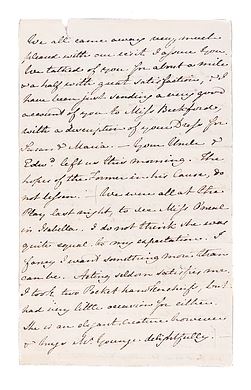 We all came away very much
pleased with our visit I assure You.
We talked of you for about a mile
& a half with great satisfaction, & I
have been just sending a very good
account of you to Miss Beckford,
with a description of your Dress for
Susan & Maria. — Your Uncle &
Edwd left us this morning. The
hopes of the Former in his Cause, do
not lessen. — We were all at the
Play last night, to see Miss O'neal
in Isabella. I do not think she was
quite equal to my expectation. I
fancy I want something more than
can be. Acting seldom satisfies me.
I took two Pocket handkercheifs, but
had very little occasion for either.
She is an elegant creature however
& hugs Mr Younge delightfully.